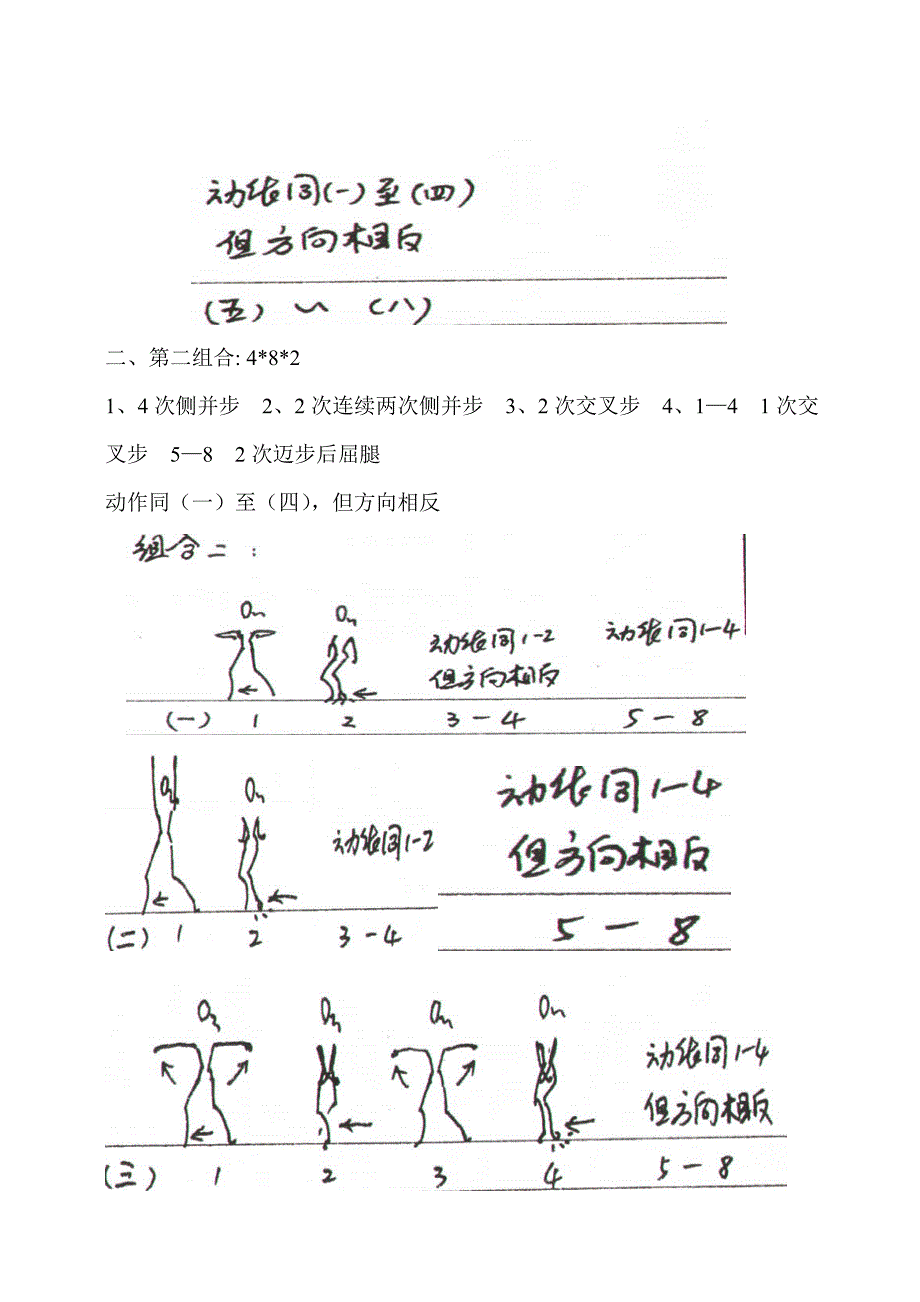 动作同(一)至(四)
但方向相反
(五) ~ (八)
二、第二组合: 4*8*2
1、4 次侧并步 2、2 次连续两次侧并步 3、2 次交叉步 4、1—4 1 次交
叉步 5—8 2 次迈步后屈腿
动作同（一）至（四），但方向相反
组合二：
动作同1-2 动作同1-4
但方向相反
(一) 1 2 3-4 5-8
动作同1-4
动作同1-2 但方向相反
(二) 1 2 3-4 5-8
动作同1-4
但方向相反
(三) 1 2 3 4 5-8